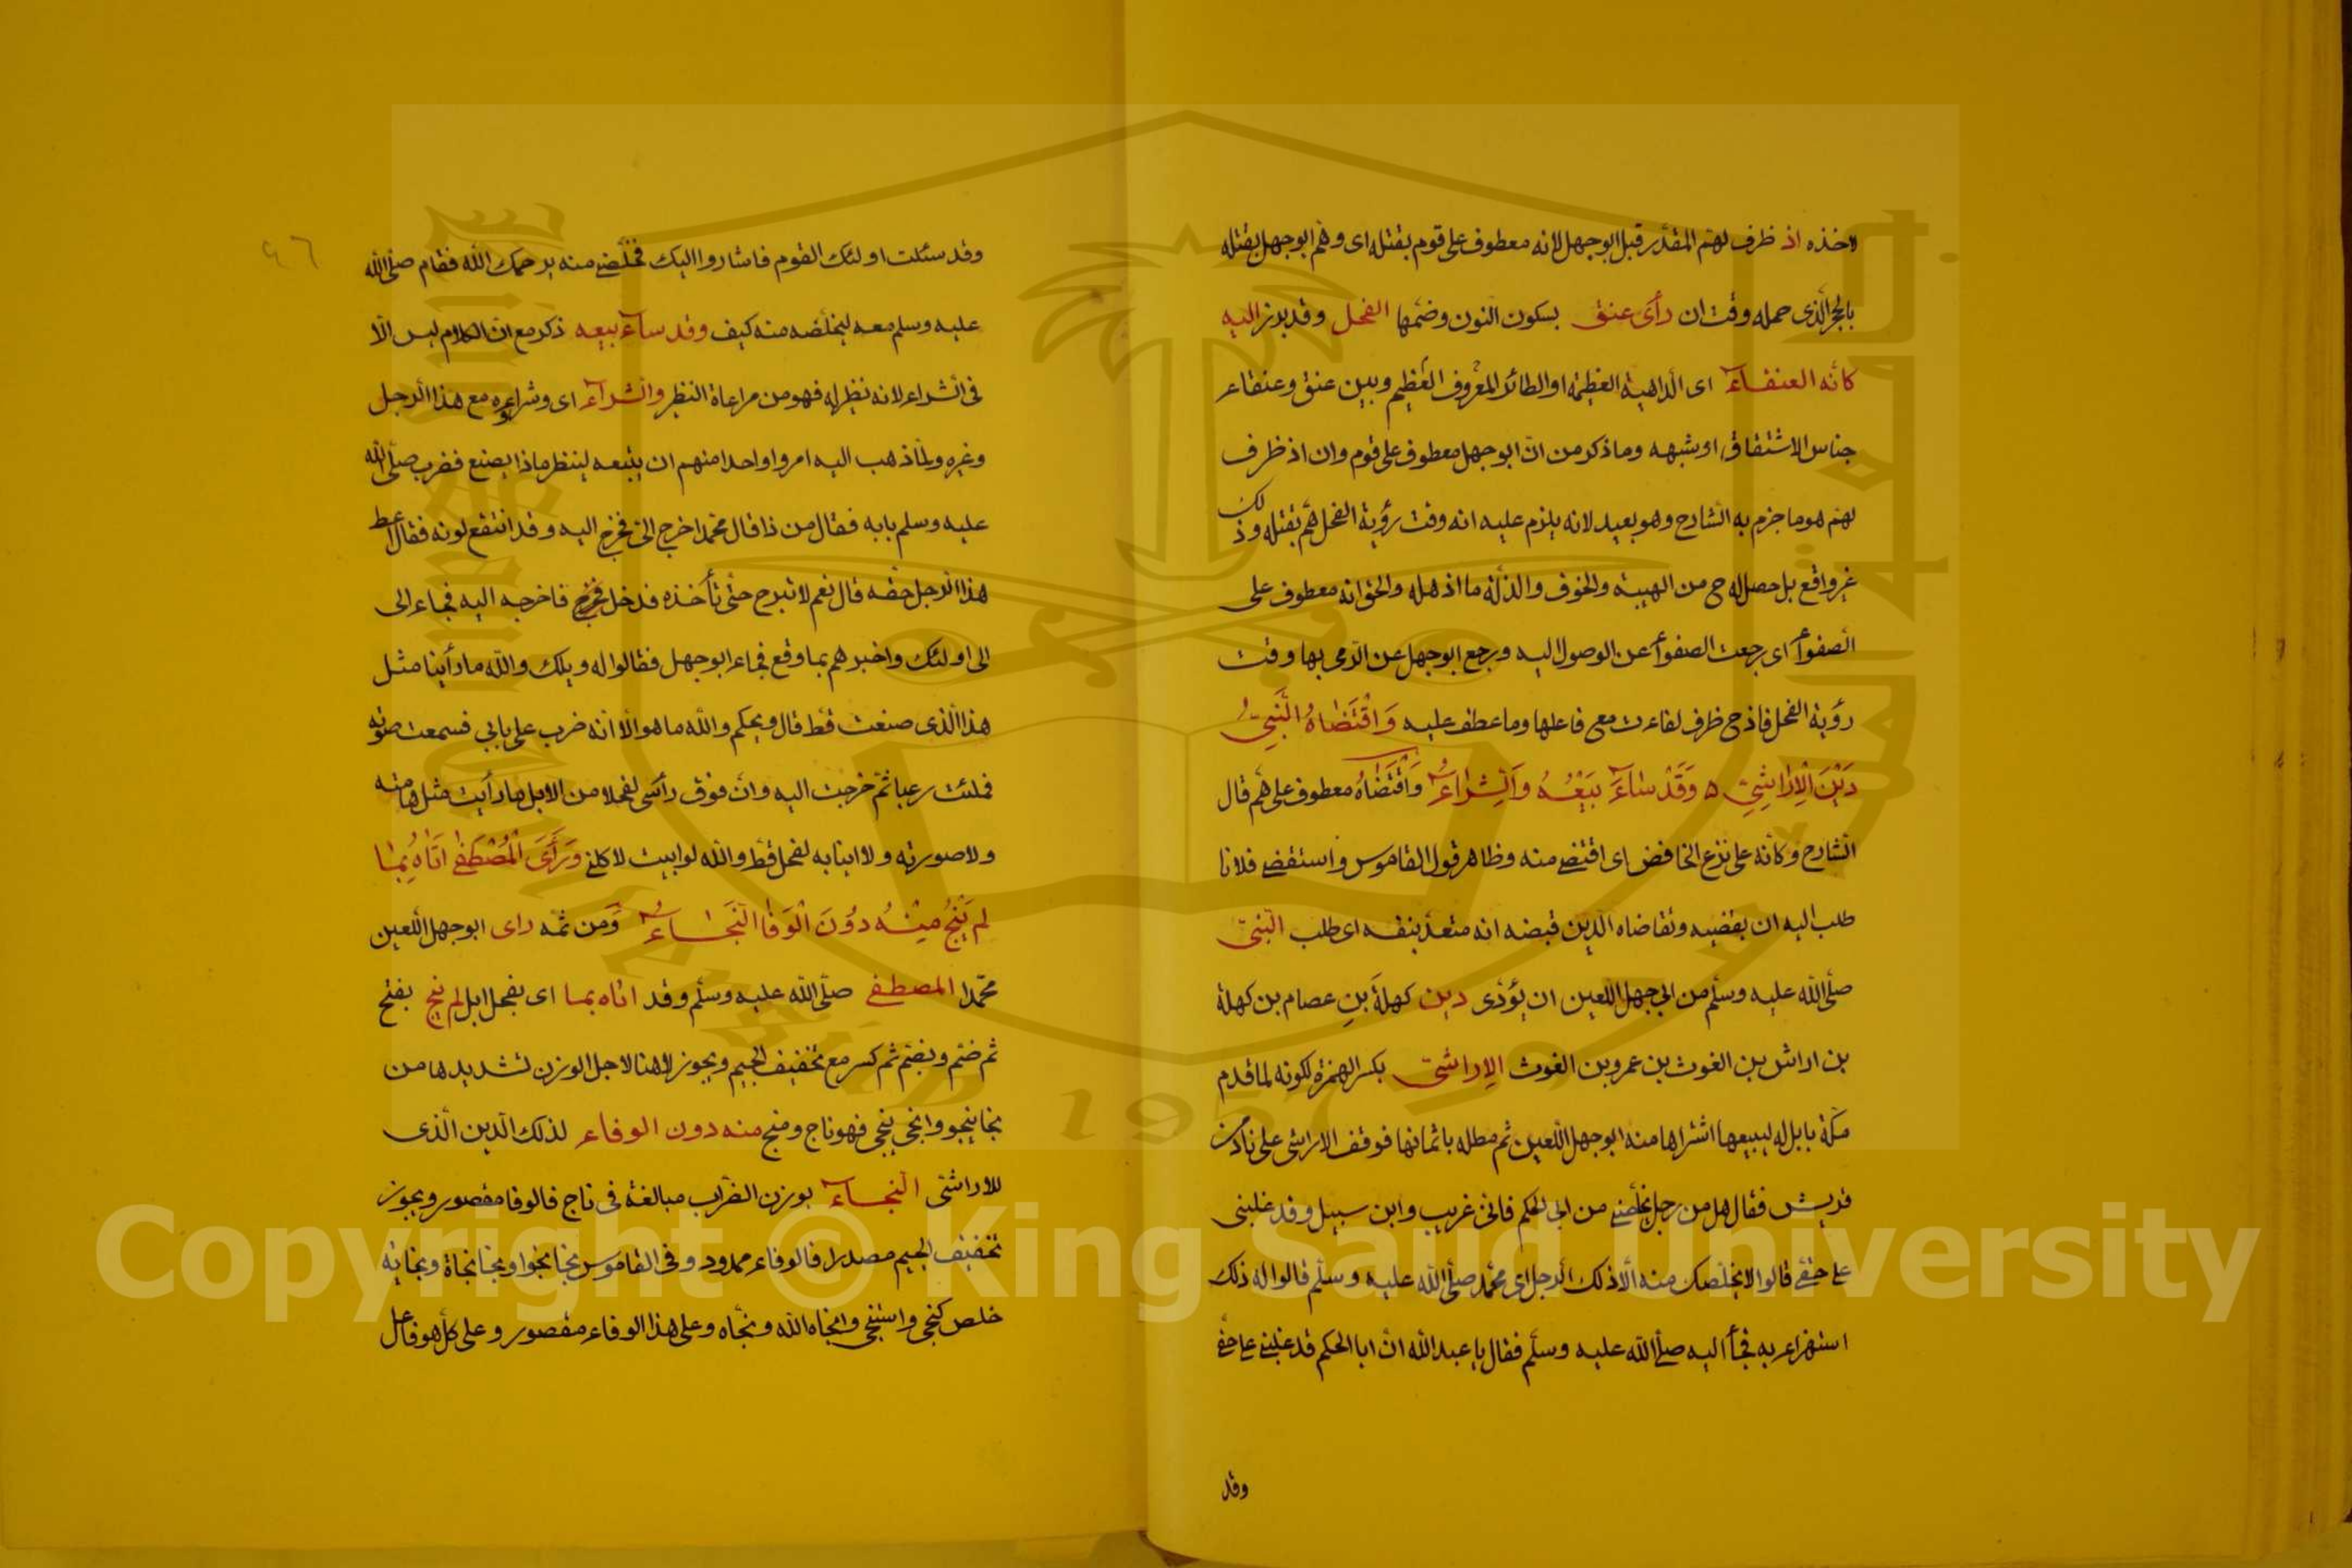 لاخذه اذ ظرف لهمّ المقدّر قبل ابوجهل لانه معطوف على قوم بقتله اى وهمّ ابوجهل بقتله
بالحجر الّذى حمله وقت ان رأى عنق بسكون النون وضمّها الفحل وقد برز اليه
كانّه العنقاء اى الداهية العظيمة او الطائر المعروف العظيم وبين عنق وعنقاء
جناس الاشتقاق او شبهه وما ذكر من انّ ابوجهل معطوف على قوم وان اذ ظرف
لهمّ هو ما جزم به الشارح وهو بعيد لانه يلزم عليه انه وقت رؤية الفحل همّ بقتله وذلك
غير واقع بل حصل له ح من الهيبة والخوف والذلّة ما اذهله والحق انه معطوف على
الصفواء اى رجعت الصفواء عن الوصول اليه ورجع ابوجهل عن الرّمى بها وقت
رؤية الفحل فاذ ح ظرف لفاءت مع فاعلها وما عطف عليه وَاقْتَضَاهُ النَّبِىُّ
دَيْنَ الْاِرَاشِىِّ ٥ وَقَدْ سَاءَ بَيْعُهُ وَالشِّرَاءُ وَاقْتَضَاهُ معطوف على همّ قال
الشارح وكأنه على نزع الخافض اى اقتضى منه وظاهر قول القاموس واستقضى فلانا
طلب اليه ان يقضيه وتقاضاه الدين قبضه انه متعدّ بنفسه اى طلب النبىّ
صلّى اللّه عليه وسلّم من ابى جهل اللعين ان يؤدّى دين كهلة بن عصام بن كهلة
بن اراش بن الغوث بن عمرو بن الغوث الاراشى بكسر الهمزة لكونه لما قدم
مكّة بابل له ليبيعها اشتراها منه ابوجهل اللعين ثم مطله باثمانها فوقف الاراشى على ناد من
قريش فقال هل من رجل يخلّصنى من ابى الحكم فانّى غريب وابن سبيل وقد غلبنى
على حقّى قالوا لا يخلّصك منه الّا ذلك الرجل اى محمّد صلّى اللّه عليه وسلّم قالوا له ذلك
استهزاء به فجاء اليه صلّى اللّه عليه وسلّم فقال يا عبد اللّه انّ ابا الحكم قد غلبنى على حقّى
وقد
٩٦
وقد سئلت اولئك القوم فاشاروا اليك فخلّصنى منه يرحمك اللّه فقام صلّى اللّه
عليه وسلم معه ليخلّصه منه كيف وقد ساء بيعه ذكر مع انّ الكلام ليس الّا
فى الشراء لانه نظير له فهو من مراعاة النظير والشراء اى وشراءه مع هذا الرجل
وغيره ولمّا ذهب اليه امروا واحدا منهم ان يتبعه لينظر ماذا يصنع فضرب صلّى اللّه
عليه وسلم بابه فقال من ذا قال محمّد اخرج الىّ فخرج اليه وقد انتقع لونه فقال اعط
هذا الرجل حقّه قال نعم لا تبرح حتّى تأخذه فدخل فخرج فاخرجه اليه فجاء الى
الى اولئك واخبرهم بما وقع فجاء ابوجهل فقالوا له ويلك واللّه ما رأينا مثل
هذا الّذى صنعت قطّ قال ويحكم واللّه ما هو الّا انّه ضرب على بابى فسمعت صوته
فملئت رعبا ثمّ خرجت اليه وانّ فوق رأسى لفحلا من الابل ما رأيت مثل هامته
ولا صورته ولا انيابه لفحل قطّ واللّه لو ابيت لاكلنى وَرَأَى الْمُصْطَفٰى اَتَاهُ بِمَا
لَم يَنْجُ مِنْهُ دُونَ الْوَفَا النَّجَاءُ وَمن ثمّه رأى ابوجهل اللّعين
محمّدا المصطفى صلّى اللّه عليه وسلّم وقد اتاه بما اى بفحل ابل لم ينج بفتح
ثم ضمّ وبضمّ ثم كسر مع تخفيف الجيم ويجوز لا هنا لاجل الوزن تشديدها من
نجا ينجو وانجى ينجى فهو ناج ومنج منه دون الوفاء لذلك الدين الّذى
للاراشىّ النجاء بوزن الضرّاب مبالغة فى ناج فالوفا مقصور ويجوز
تخفيف الجيم مصدرا فالوفاء ممدود وفى القاموس نجا نجوا ونجا نجاة ونجاية
خلص كنجّى واستنجى وانجاه اللّه ونجّاه وعلى هذا الوفاء مقصور وعلى كلّ هو فاعل
Copyright © King Saud University
1957